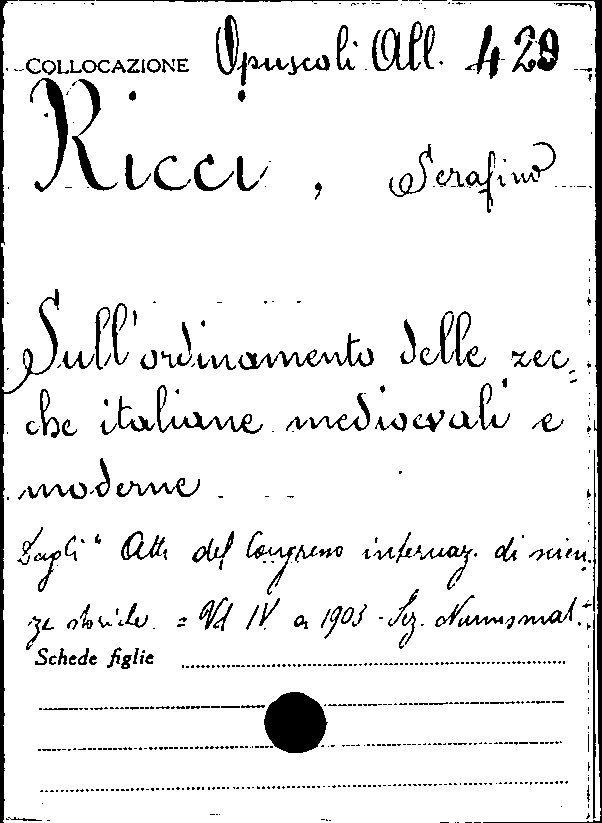 COLLOCAZIONE Opuscoli All. 429
Ricci, Serafino
Sull'ordinamento delle zec=
che italiane medioevali e
moderne
Dagli "Atti del Congresso internaz. di scien
ze storiche = Vol IV a 1903 - Sez. Numismat.
Schede figlie